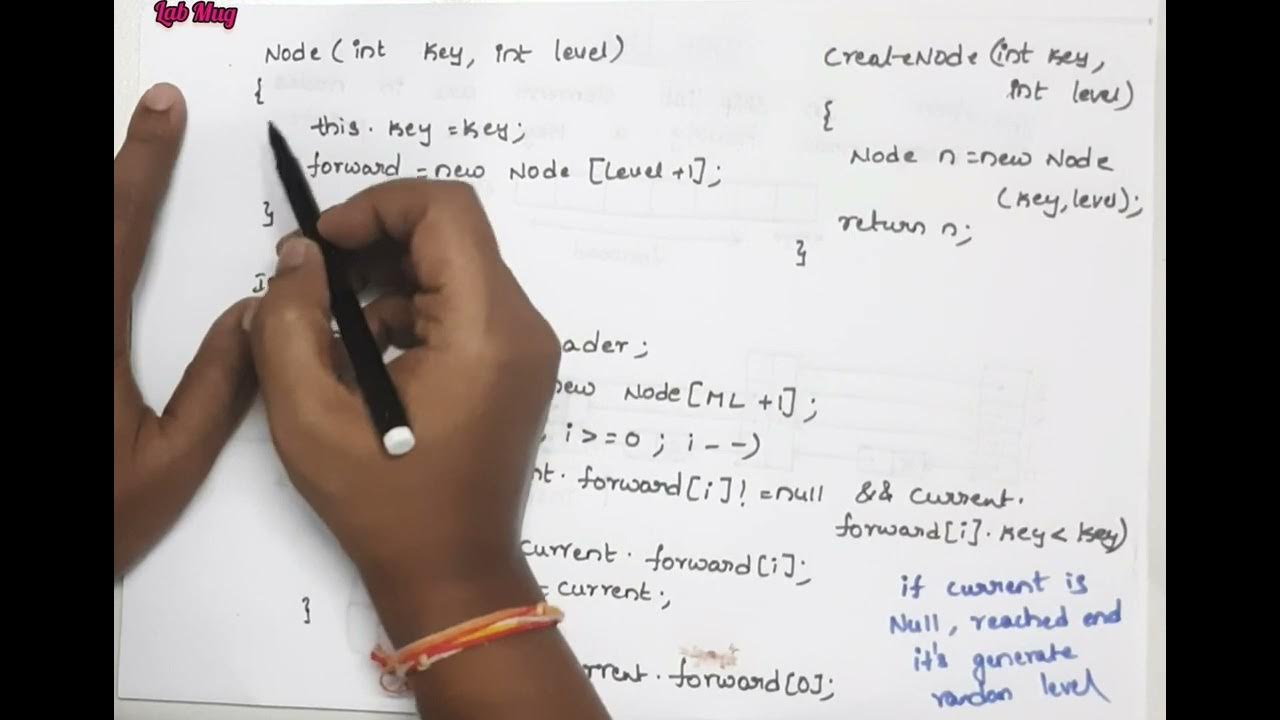 Lab Mug
Node (int key, int level)
{
this. key = key;
forward = new Node [Level +1];
}
CreateNode (int key,
int level)
{
Node n = new Node
(key, level);
return n;
}
ader;
new Node[ML +1];
, i >= 0 ; i - -)
nt. forward[i]! = null && current.
forward[i]. key < key)
current. forward[i];
= current;
}
rrent. forward[0];
if current is
Null, reached end
it's generate
randon level